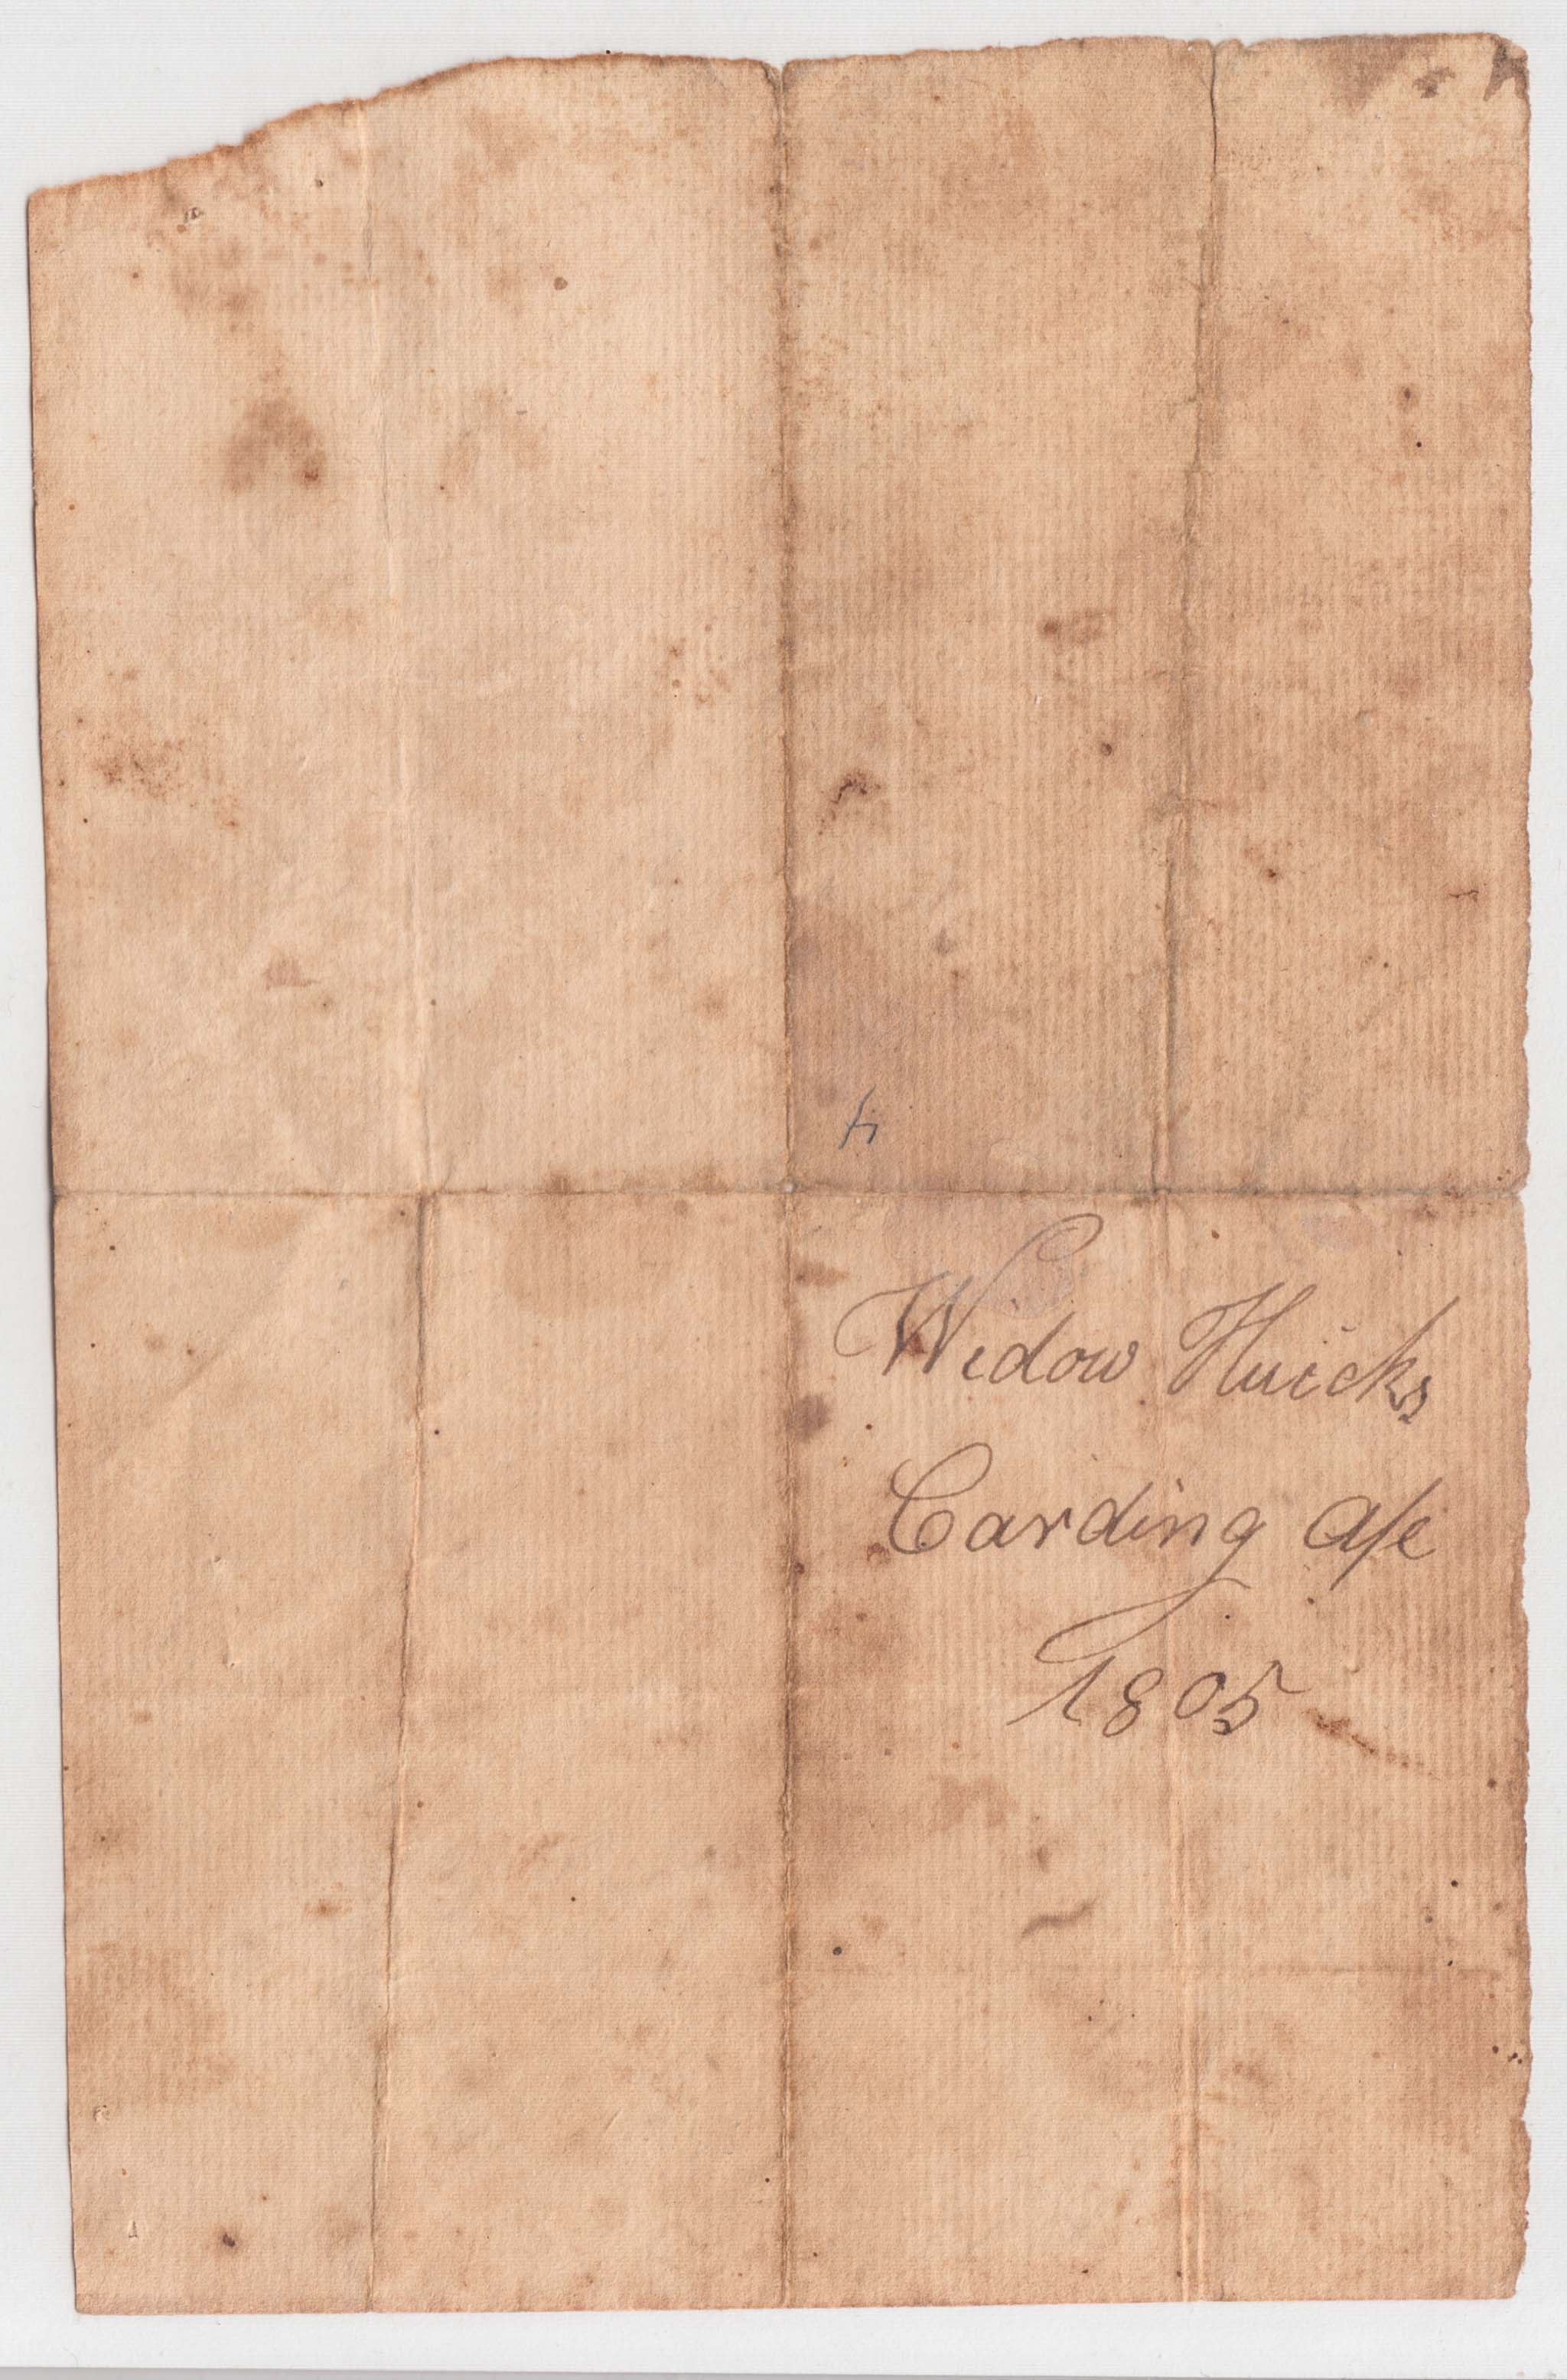 4
Widow Huicks
Carding a/c
1805